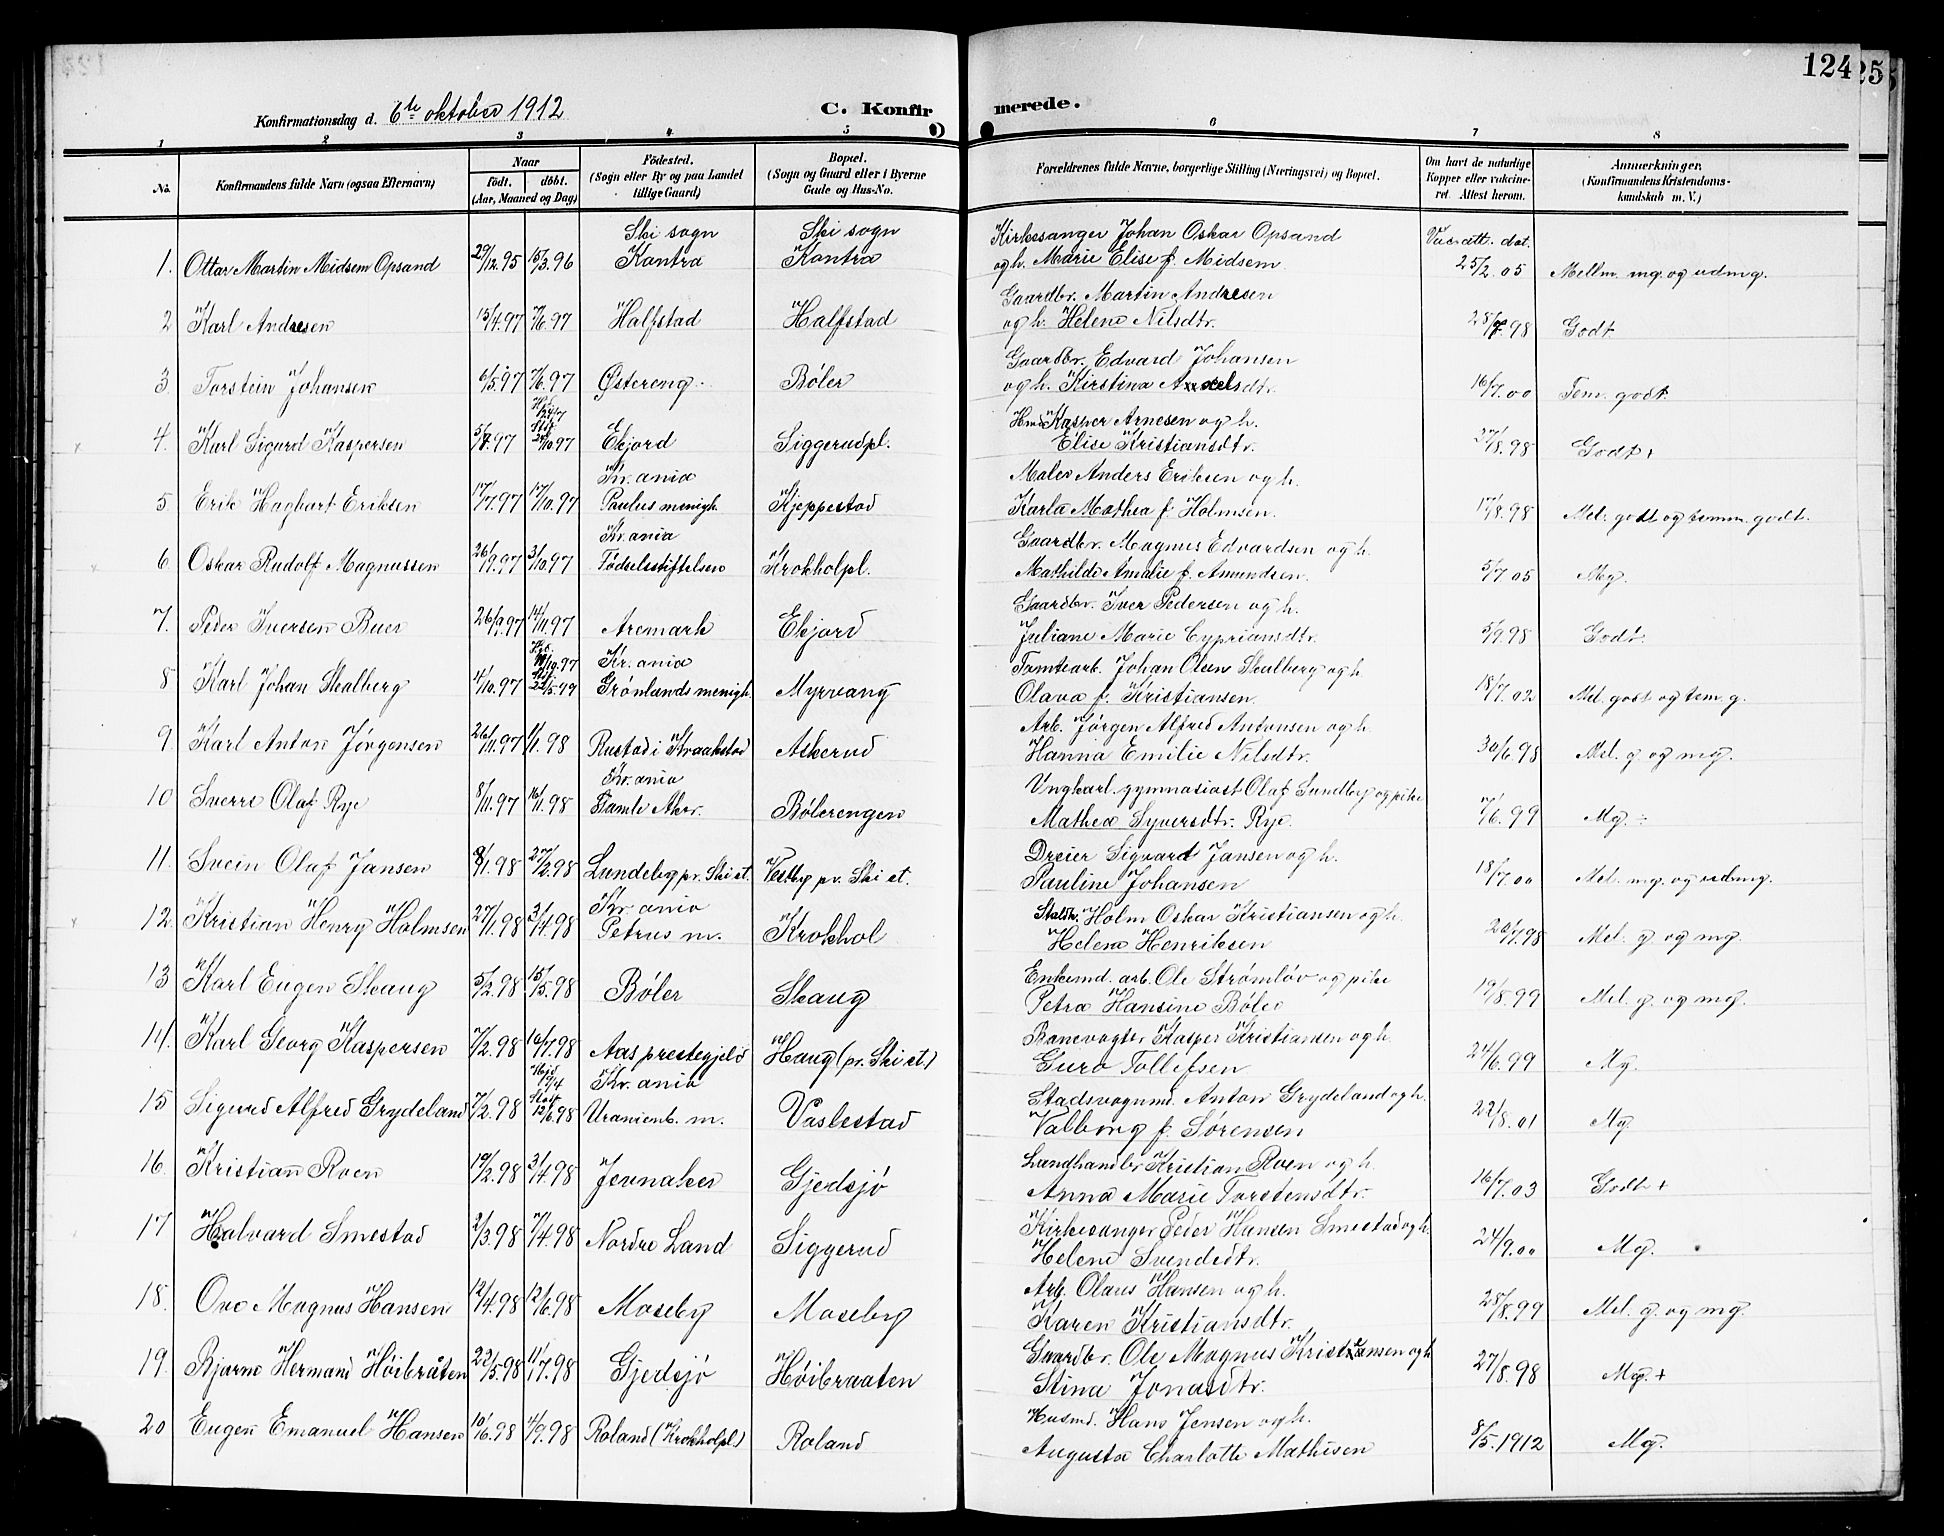 124
25
Konfirmationsdag d. 6te oktober 1912
C. Konfirmerede.
1 2 3 4 5 6 7 8
No.
Konfirmandens fulde Navn (ogsaa Efternavn)
Naar
födt. döbt.
(Aar, Maaned og Dag)
Födested.
(Sogn eller By og paa Landet
tillige Gaard)
Bopæl.
(Sogn og Gaard eller i Byerne
Gade og Hus-No.
Forældrenes fulde Navne, borgerlige Stilling (Næringsvei) og Bopæl.
Om havt de naturlige
Kopper eller vakcine-
ret. Attest herom.
Anmærkninger.
(Konfirmandens Kristendoms-
kundskab m. V.)
Ski sogn Ski sogn Kirkesanger Johan Oskar Opsand Vac.att. dat.
1. Ottar Martin Midsem Opsand 29/12.95 15/3.96 Kontra Kontra og h. Marie Elise f. Midsem 25/2.05 Mellm. mg. og udmg.
Gaardbr. Martin Andresen
2 Karl Andresen 15/4.97 7/6.97 Halfstad Halfstad og h. Helene Nilsdtr. 28/7.98 Godt
Gaardbr. Edvard Johansen
3 Torstein Johansen 6/5.97 7/6.97 Østereng Bøler og h. Kirstina Axelsdtr. 16/7.00 Tem. godt
Kasper Arnesen og h.
4. Karl Sigurd Kaspersen 5/7.97 24/10.97 Ekjord Siggerudpl. Elise Kristiansdtr. 27/8.98 Godt+
Kr.ania Maler Anders Eriksen og h.
5. Erik Hagbart Eriksen 17/7.97 17/10.97 Paulus menigh. Kjeppestad Karla Mathea f. Holmsen. 17/8.98 Mel. godt og temm. godt.
Kr.ania Gaardbr. Magnus Edvardsen og h.
6 Oskar Rudolf Magnussen 26/9.97 3/10.97 Födselsstiftelsen Krokholpl. Mathilde Amalie f. Amundsen. 5/7.05 Mg.
Gaardbr. Iver Pedersen og h.
7. Peder Iversen Buer 26/9.97 14/11.97 Aremark Ekjord Juliane Marie Cypriansdtr. 5/9.98 Godt
Kr.ania Tomtearb. Johan Olsen Skalberg og h.
8 Karl Johan Skalberg 4/10.97 Grönlands menigh. Myrvang Olava f. Kristiansen. 18/7.02 Mel. godt og tem. g.
Arb. Jörgen Alfred Antonsen og h.
9. Karl Anton Jörgensen 26/11.97 1/1.98 Rustad i Kraakstad Askerud Hanna Emilie Nilsdtr. 30/6.98 Mel. g. og mg.
Kr.ania Ungkarl. gymnasiast Olaf Sundby og pike
10 Sverre Olaf Rye 8/11.97 16/1.98 Gamle Aker. Bölerengen Mathea Syversdtr. Rye. 7/6.99 Mg. ÷
Dreier Sigvard Jansen og h.
11. Svein Olaf Jansen 8/1.98 27/2.98 Lundeby pr. Ski st. Vestby pr. Ski st. Pauline Johansen 18/7.00 Mel. mg. og udmg.
Kr.ania Staldk. Holm Oskar Kristiansen og h.
12. Kristian Henry Holmsen 27/1.98 3/4.98 Petrus m. Krokhol Helene Henriksen 20/7.98 Mel. g. og mg.
Enkemd. arb. Ole Strömlöv og pike
13 Karl Eugen Skaug 5/2.98 15/5.98 Böler Skaug Petra Hansine Böler 19/8.99 Mel. g. og mg.
Banevogter Kasper Kristiansen og h.
14. Karl Georg Kaspersen 7/2.98 16/7.98 Aas prestegjeld Haug (pr. Ski st.) Guro Tollefsen 24/6.99 Mg.
Kr.ania Stadsvognmd. Anton Grydeland og h.
15 Sigurd Alfred Grydeland 7/2.98 12/6.98 Uranienb. m. Vaslestad Valborg f. Sörensen 22/8.01 Mg
Landhandler Kristian Roen og h.
16. Kristian Roen 19/2.98 3/4.98 Jevnaker Gjedsjö Anna Marie Torstensdtr. 16/7.03 Godt +
Kirkesanger Peder Hansen Smestad og h.
17 Halvard Smestad 2/3.98 7/4.98 Nordre Land Siggerud Helene Svendsdtr. 24/9.00 Mg.
Arb. Olaus Hansen og h.
18. Ove Magnus Hansen 12/4.98 12/6.98 Moseby Moseby Karen Kristiansdtr. 28/8.99 Mel. g. og mg.
Gaardbr. Ole Magnus Kristiansen og h
19. Bjarne Hermand Höibråten 22/5.98 11/7.98 Gjedsjö Höibraaten Stina Jonasdtr. 27/8.98 Mg.+
Husmd. Hans Jensen og h.
20 Eugen Emanuel Hansen 10/6.98 4/9.98 Roland (Krokholpl) Roland Augusta Charlotte Mathisen 8/5.1912 Mg.